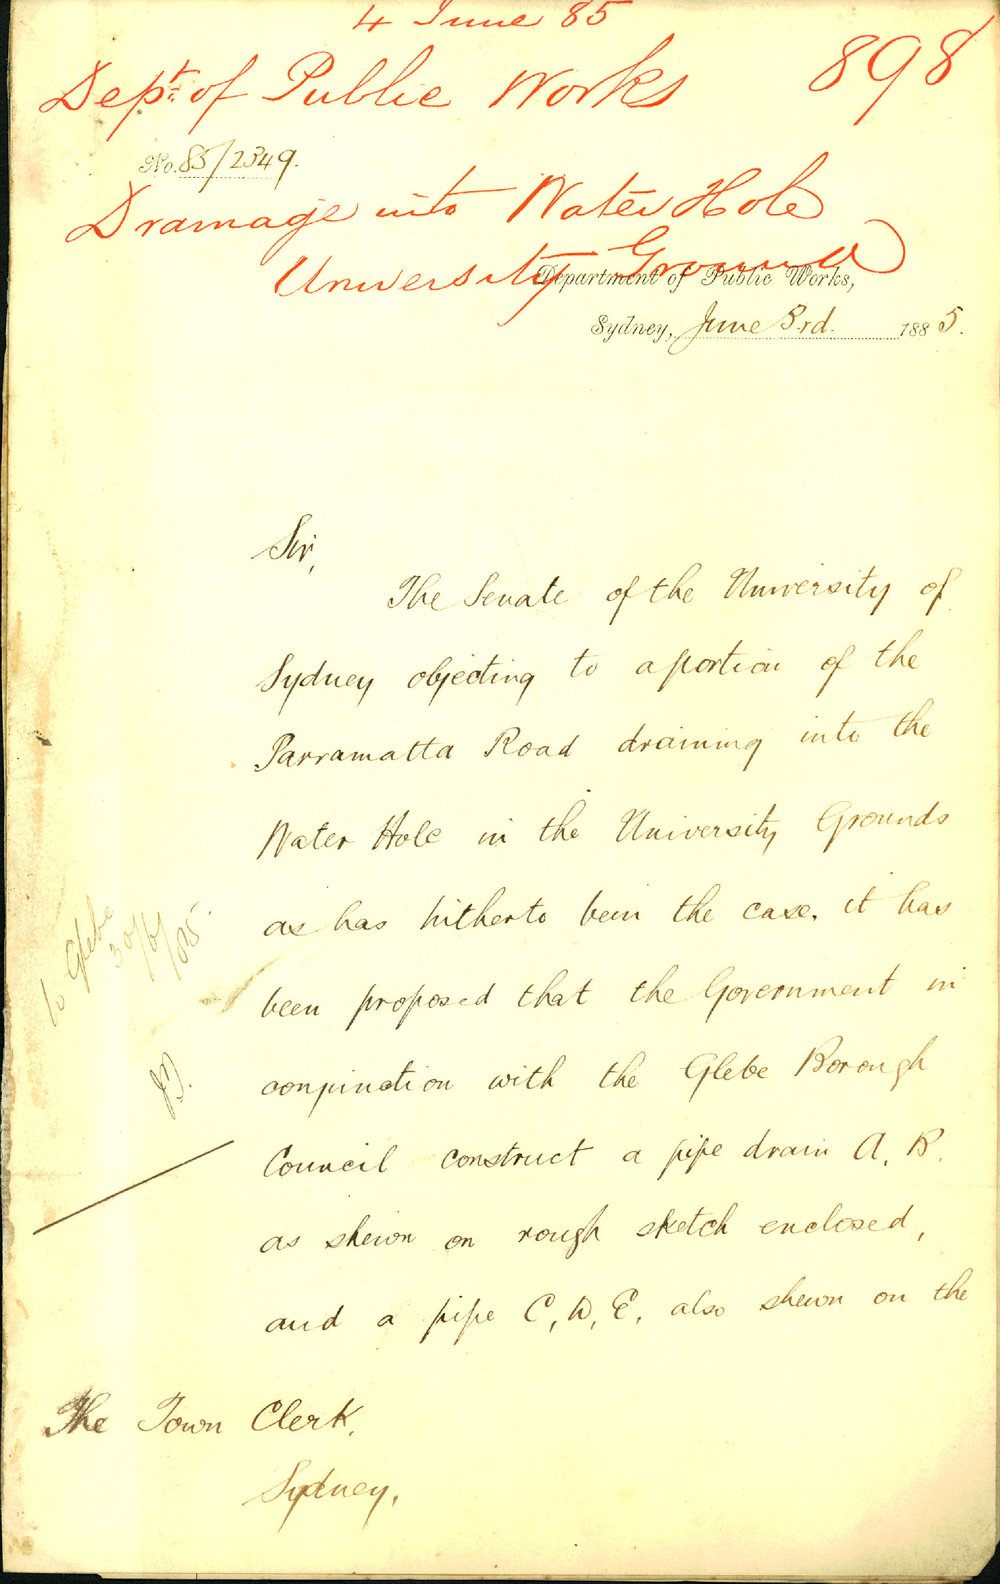 4 June 85
898
Dept. of Public Works
No. 85/2549.
Drainage into Water Hole
University Ground
Department of Public Works,
Sydney, June 3rd. 1885.
Sir,
The Senate of the University of
Sydney objecting to a portion of the
Parramatta Road draining into the
Water Hole in the University Grounds
as has hitherto been the case, it has
been proposed that the Government in
conjunction with the Glebe Borough
Council construct a pipe drain A. B.
as shewn on rough sketch enclosed,
and a pipe C, D, E, also shewn on the
The Town Clerk.
Sydney.
To Glebe
30/6/85